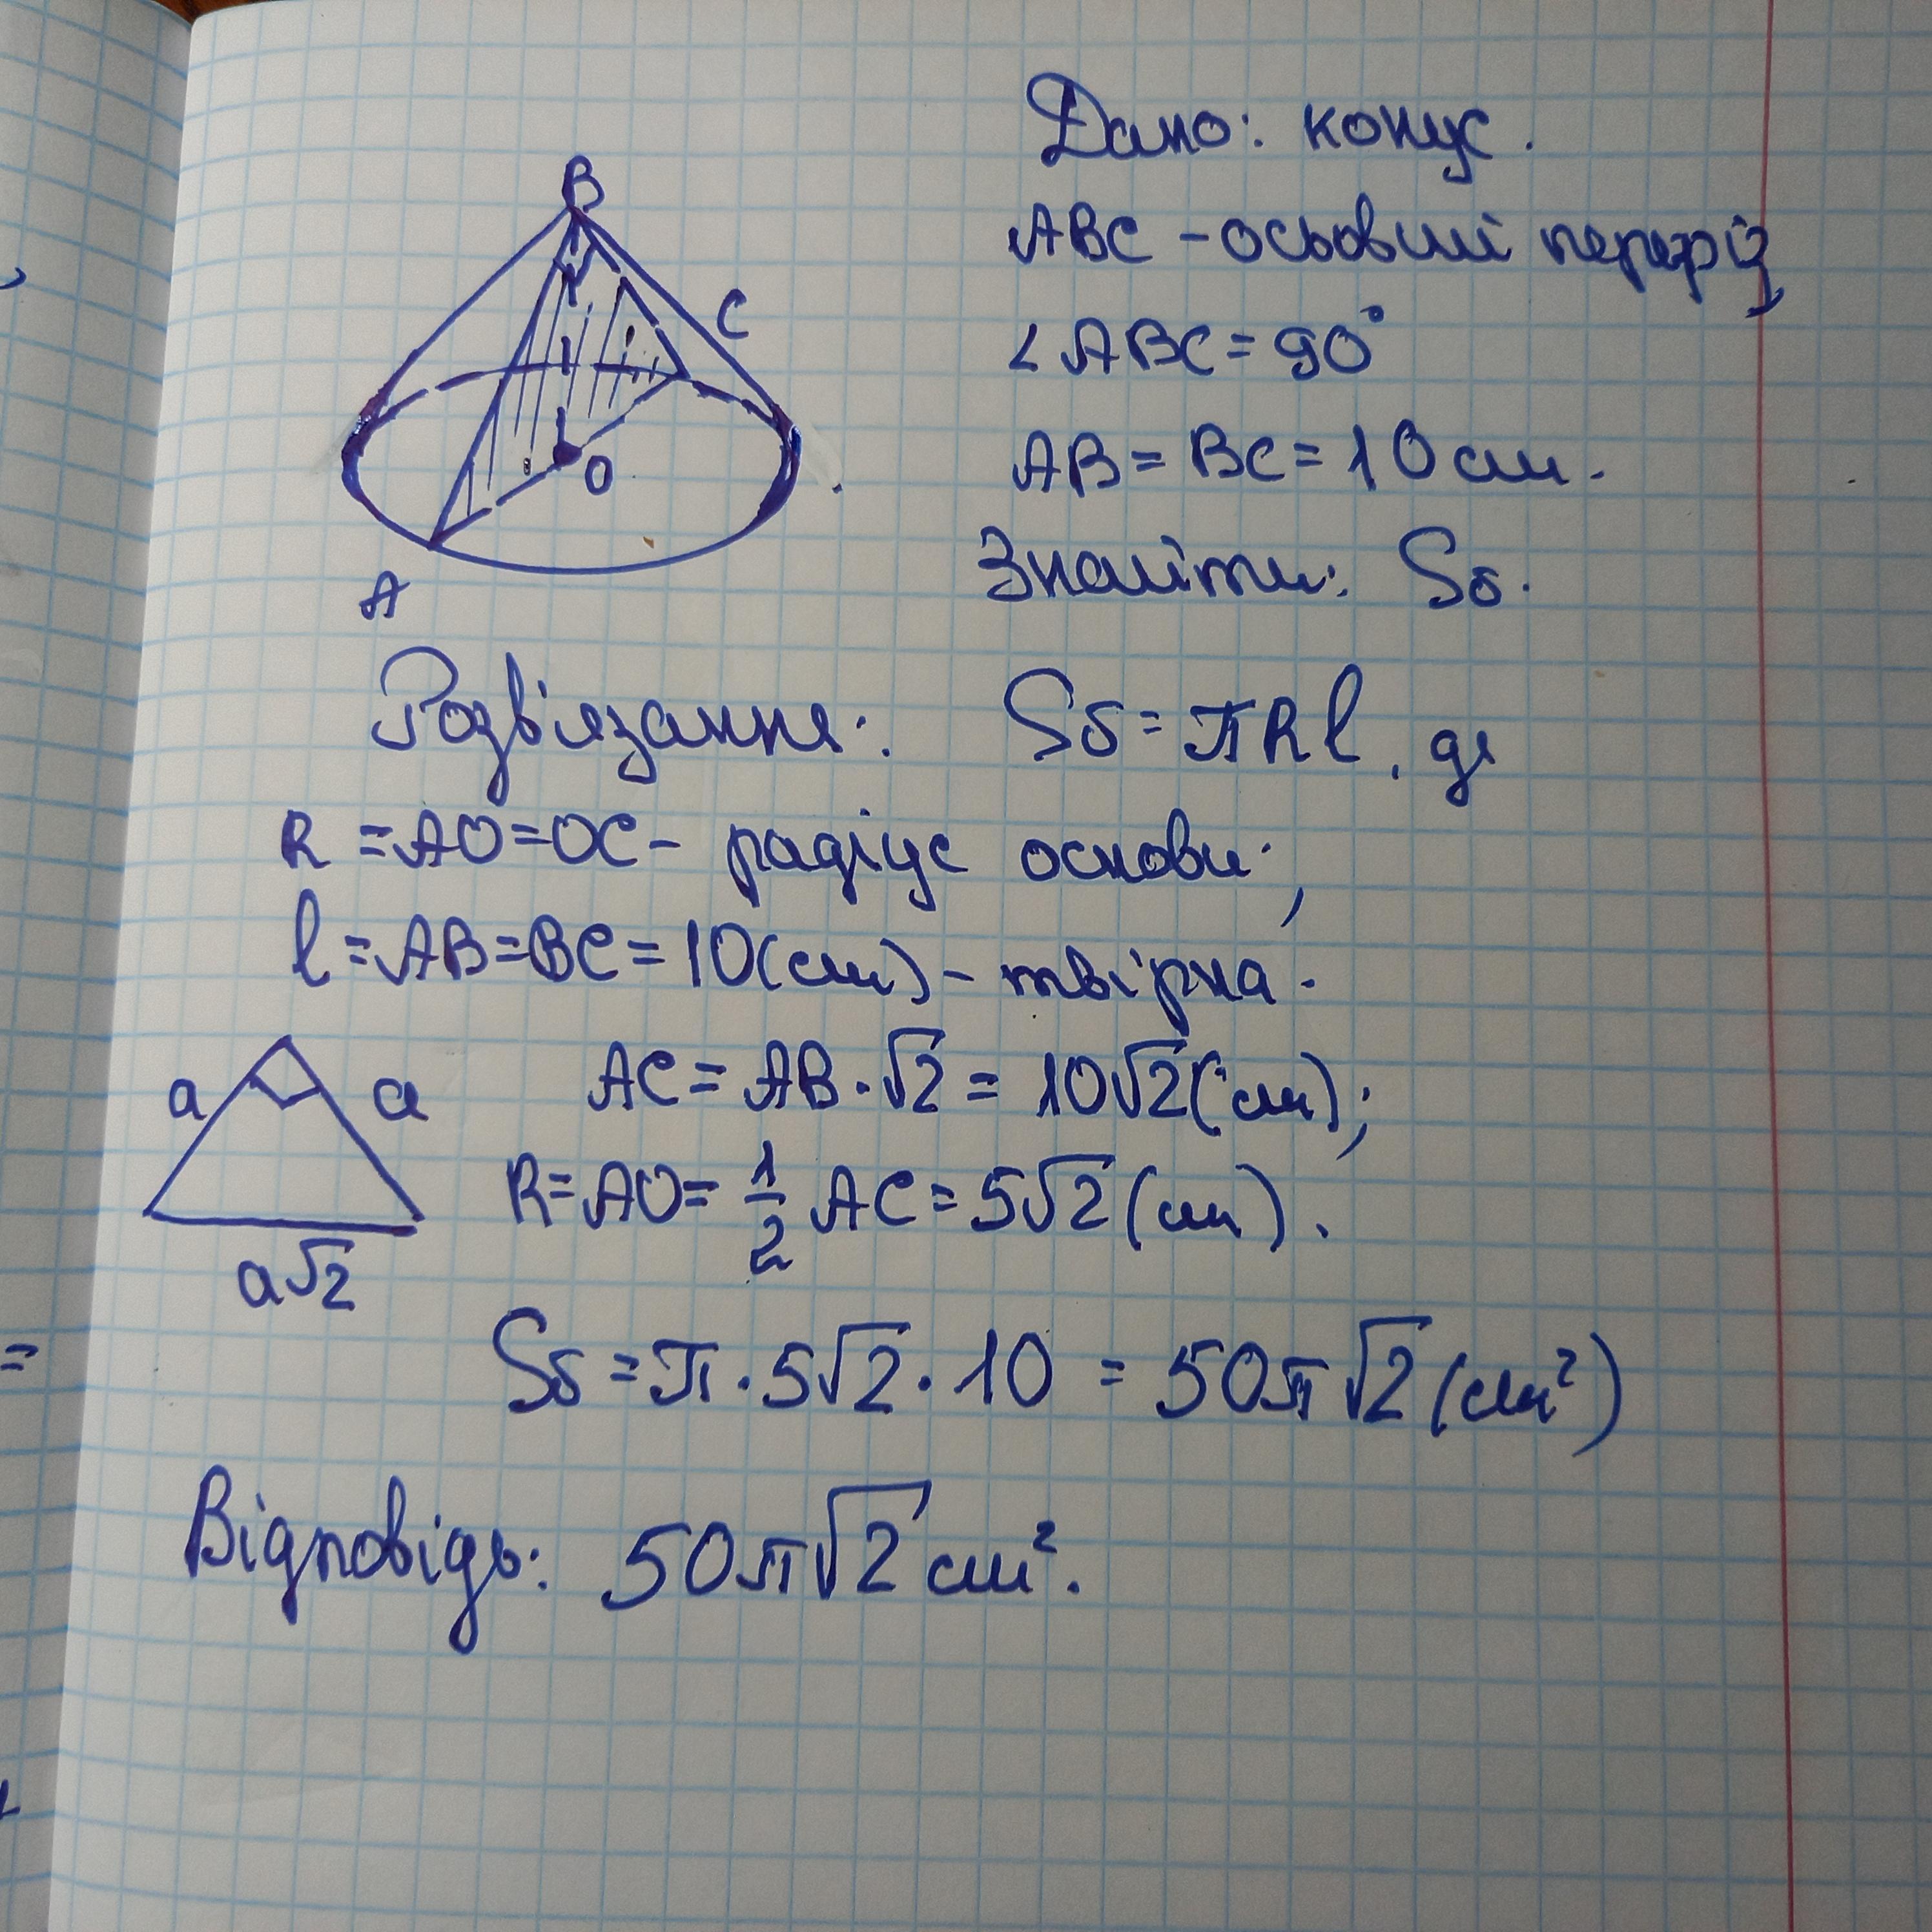 Дано: конус.
B
ABC - осьовий переріз
C
∠ABC = 90°
O
AB = BC = 10 см.
A
Знайти: Sб.
Розв'язання: Sб = πRl, де
R = AO = OC - радіус основи;
l = AB = BC = 10(см) - твірна.
a a
AC = AB · √2 = 10√2 (см);
R = AO = 1/2 AC = 5√2 (см).
a√2
Sб = π · 5√2 · 10 = 50π√2 (см²)
Відповідь: 50π√2 см².